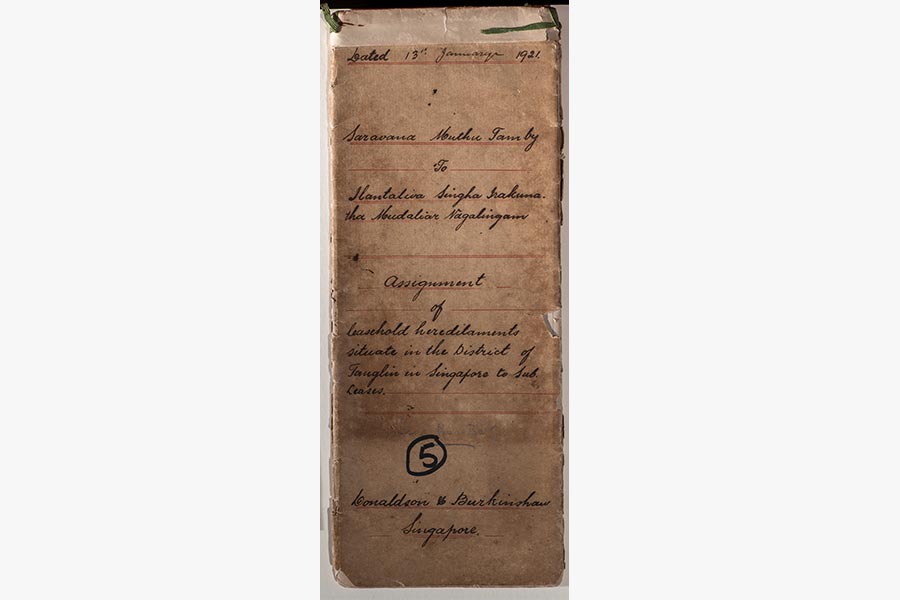 Dated 13th January 1921.
Saravana Muthu Tamby
To
Ilantaliva Singha Irakuna-
tha Mudaliar Nagalingam
Assignment
of
leasehold hereditaments
situate in the District of
Tanglin in Singapore to Sub.
Leases.
5
Donaldson & Burkinshaw
Singapore.